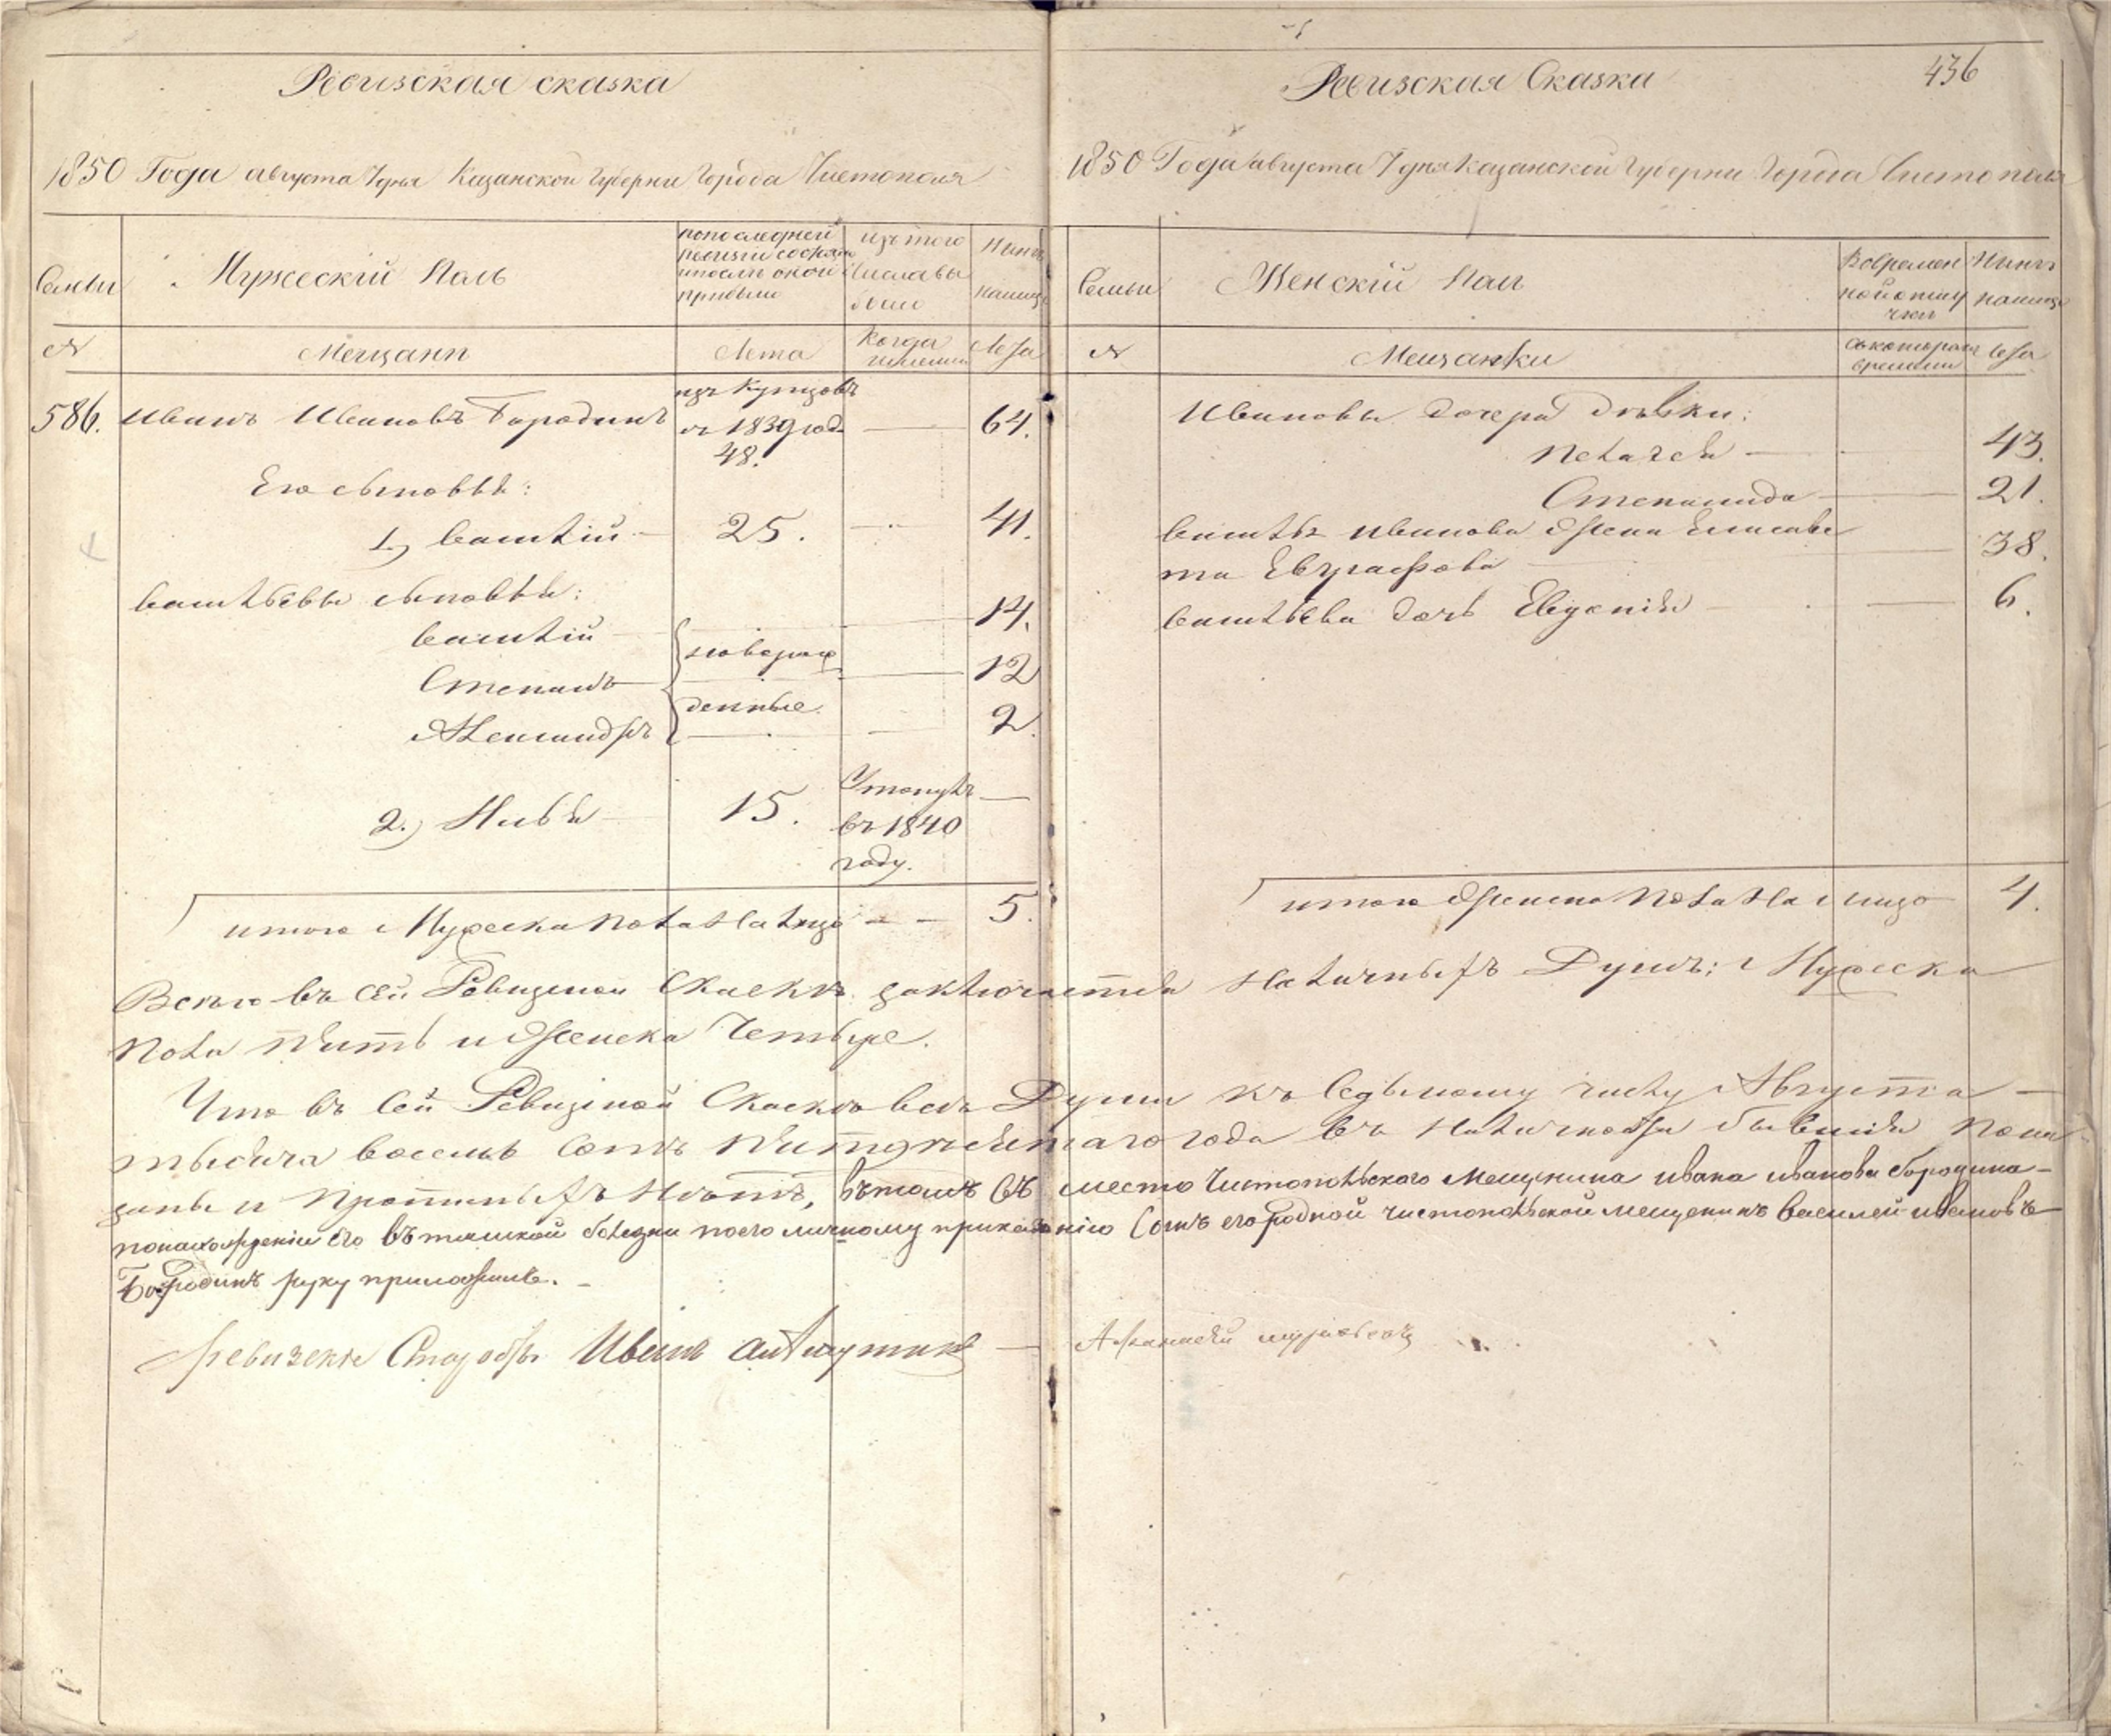 Ревизская сказка
1850 Года августа 7 дня Казанской Губерни Города Чистополя
Семьи
Мужескій Полъ
по последней
ревизіи состояло
и после оной
прибыли
изъ того
числа вы
было
Нынѣ
налицо
№
Мещанп
Лета
Когда
имянно
Лета
586.
Иванъ Ивановъ Бородинъ
изъ Купцовъ
съ 1839 года
48.
64.
Его сыновья:
1.) Василій
25.
41.
Васильевы сыновья:
Василій
14.
новорож
Степанъ
12
денные.
Александръ
2.
2.) Илья
15.
Утонулъ
въ 1840
году.
итого Мужеска пола на лицо
5.
Ревизская Сказка
436
1850 Года августа 7 дня Казанской Губерни Города Чистополя
Семьи
Женскій Полъ
Во времен
ной отлу
чки
Нынѣ
налицо
№
Мещанки
съ котораго
времени
Лета
Ивановы дочери девки:
Пелагея
43.
Степанида
21.
Василья Иванова жена Елисаве
та Евграфова
38.
Васильева дочь Евгенія
6.
итого женска пола на лицо
4.
Всего въ сей Ревизской Сказке заключается наличныхъ Душъ: Мужеска
пола пять и женска Четыре.
Что въ сей Ревизской Сказке все Души къ Седьмому числу Августа
тысяча восемь сотъ пятдесятаго года въ наличности бывшія пока
заны и прописныхъ нетъ, въ томъ въ место Чистопольского Мещенина ивана иванова бородина
по нахожденіи его въ тяшкой болезни по его личному приказанію сынъ его родной чистопольской мещенинъ василей ивановъ
Бородинъ руку приложилъ.
ревизски Староста Иванъ
Афанасей